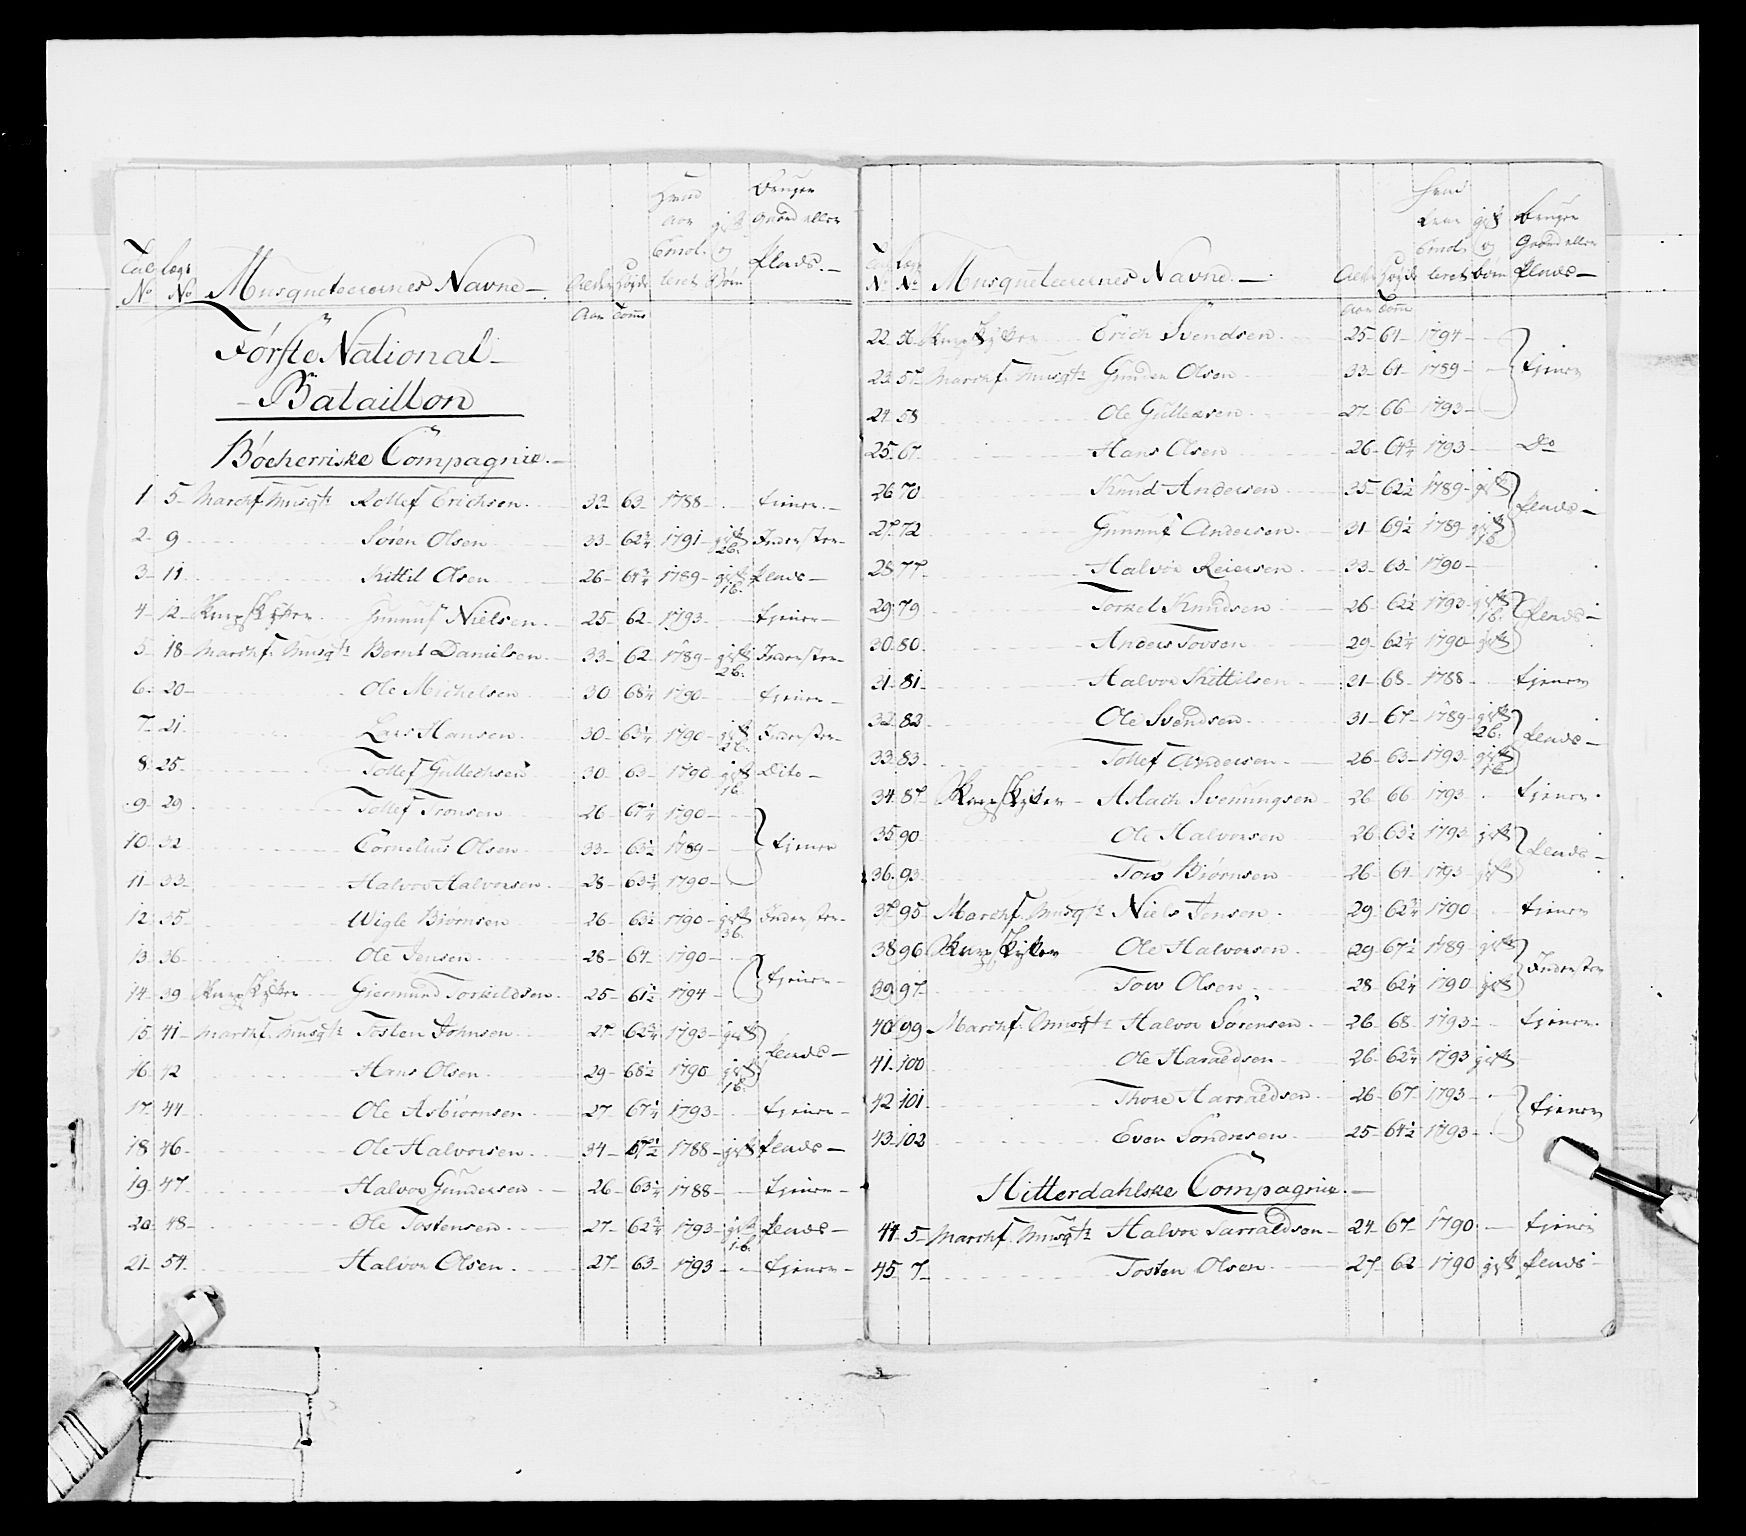 Tal No Lægs No Musqueteerernes Navne Alder Aar Høyde Tomme Hvad Aar Enrolleret gift og Børn Bruger Gaard eller Plads
Første National
Bataillon
Bøcherriske Compagnie
1 5 Marchf. Musqt: Rollef Erichsen 33 63 1788 tiener
2 9 Søren Olsen 33 62¾ 1791 gift 2b. Inderster
3 11 Kittil Olsen 26 64¾ 1789 gift 1b. Plads
4 12 Karpskytter Gunnuf Nielsen 25 62 1793 tiener
5 18 Marchf. Musqt: Bernt Danielsen 33 62 1789 gift 2b. Inderster
6 20 Ole Michelsen 30 68¼ 1790 tiener
7 21 Lars Hansen 30 63¼ 1790 gift 2b. Inderster
8 25 Tollef Gullechsen 30 63 1790 gift 1b. Dito
9 29 Tollef Tronsen 26 67¼ 1790
10 32 Cornelius Olsen 33 63½ 1789 tiener
11 33 Halvor Halvorsen 28 63¼ 1790
12 35 Wigle Biørnsen 26 63½ 1790 gift 3b. Inderster
13 36 Ole Jensen 28 64 1790
14 39 Karpskytter Giermund Torkildsen 25 61½ 1794 tiener
15 41 Marchf. Musqt: Tosten Johnsen 27 62¾ 1793 gift
16 42 Hans Olsen 29 68½ 1790 gift 1b. Plads
17 44 Ole Asbiørnsen 27 67¼ 1793 tiener
18 46 Ole Halvorsen 34 67½ 1788 gift Plads
19 47 Halvor Gundersen 26 63¼ 1788 tiener
20 48 Ole Tostensen 27 62¾ 1793 gift 1b. Plads
21 54 Halvor Olsen 27 63 1793 tiener
Tal No Lægs No Musqueteerernes Navne Alder Aar Høyde Tomme Hvad Aar Enrolleret gift og børn Bruger Gaard eller Plads
22 56 Karpskytter Erich Svendsen 25 61 1794
23 57 Marchf. Musqt: Gunder Olsen 33 61 1789 tiener
24 58 Ole Gullexsen 27 66 1793
25 67 Hans Olsen 26 64¾ 1793 Do
26 70 Knud Andersen 35 62½ 1789 gift
27 72 Gunnuf Andersen 31 69½ 1789 gift 1b Plads
28 77 Halvor Reiersen 33 63 1790
29 79 Torkel Knudsen 26 62½ 1793 gift 1b. Plads
30 80 Anders Tovsen 29 62¼ 1790 gift
31 81 Halvor Kittilsen 31 68 1788 tiener
32 82 Ole Svendsen 31 67 1789 gift 2b.
33 83 Tollef Andersen 26 63 1793 gift 1b Plads
34 87 Karpskytter Aslach Svenungsen 26 66 1793 tiener
35 90 Ole Halvorsen 26 63½ 1793 gift
36 93 Tow Biørnsen 26 64 1793 gift Plads
37 95 Marchf. Musqt: Niels Jensen 29 62¾ 1790 tiener
38 96 Karpskytter Ole Halvorsen 29 67½ 1789 gift
39 97 Tow Olsen 28 62¼ 1790 gift Inderster
40 99 Marchf. Musqt: Halvor Sørensen 26 68 1793 tiener
41 100 Ole Haraldsen 26 62¾ 1793 gift
42 101 Thore Harraldsen 26 67 1793
43 102 Even Sondresen 25 64½ 1793 tiener
Hitterdahlske Compagnie
44 5 Marchf. Musqt: Halvor Tarraldsen 24 67 1790 tiener
45 7 Tosten Olsen 27 62 1790 gift Plads